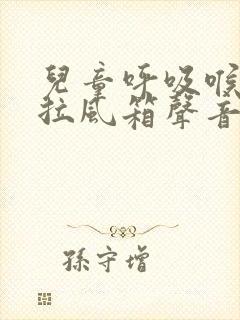 兒童呼吸喉
拉風箱聲音
孫守增